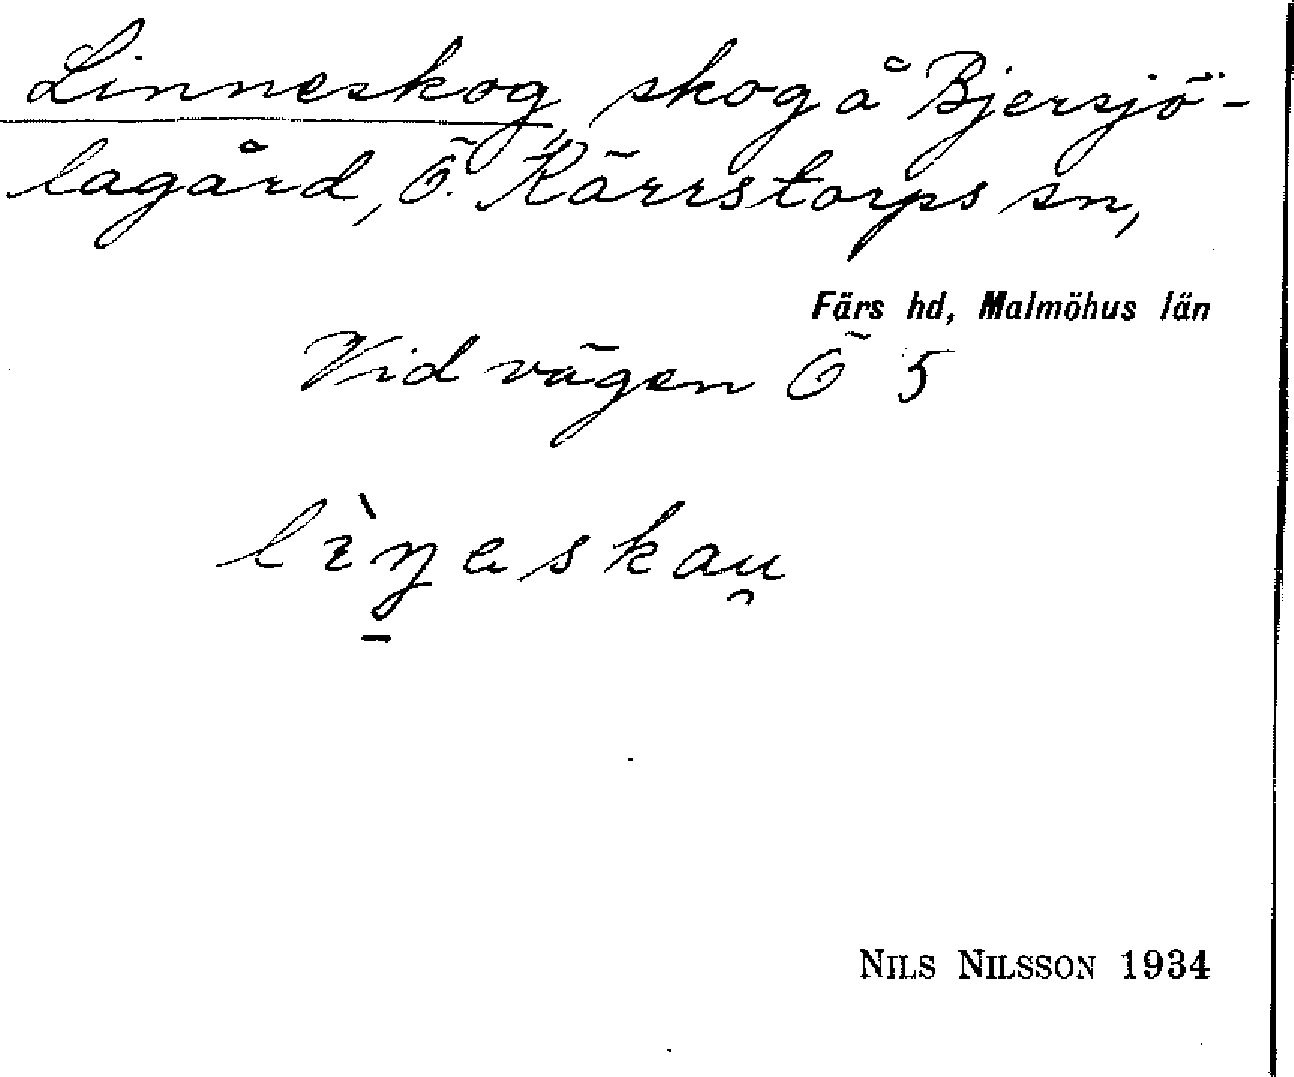 Linneskog, skog å Bjersjö-
lagård, Ö. Kärrstorps sn,
Färs hd, Malmöhus län
Vid vägen Ö 5
lìŋ̠eskau̯
NILS NILSSON 1934